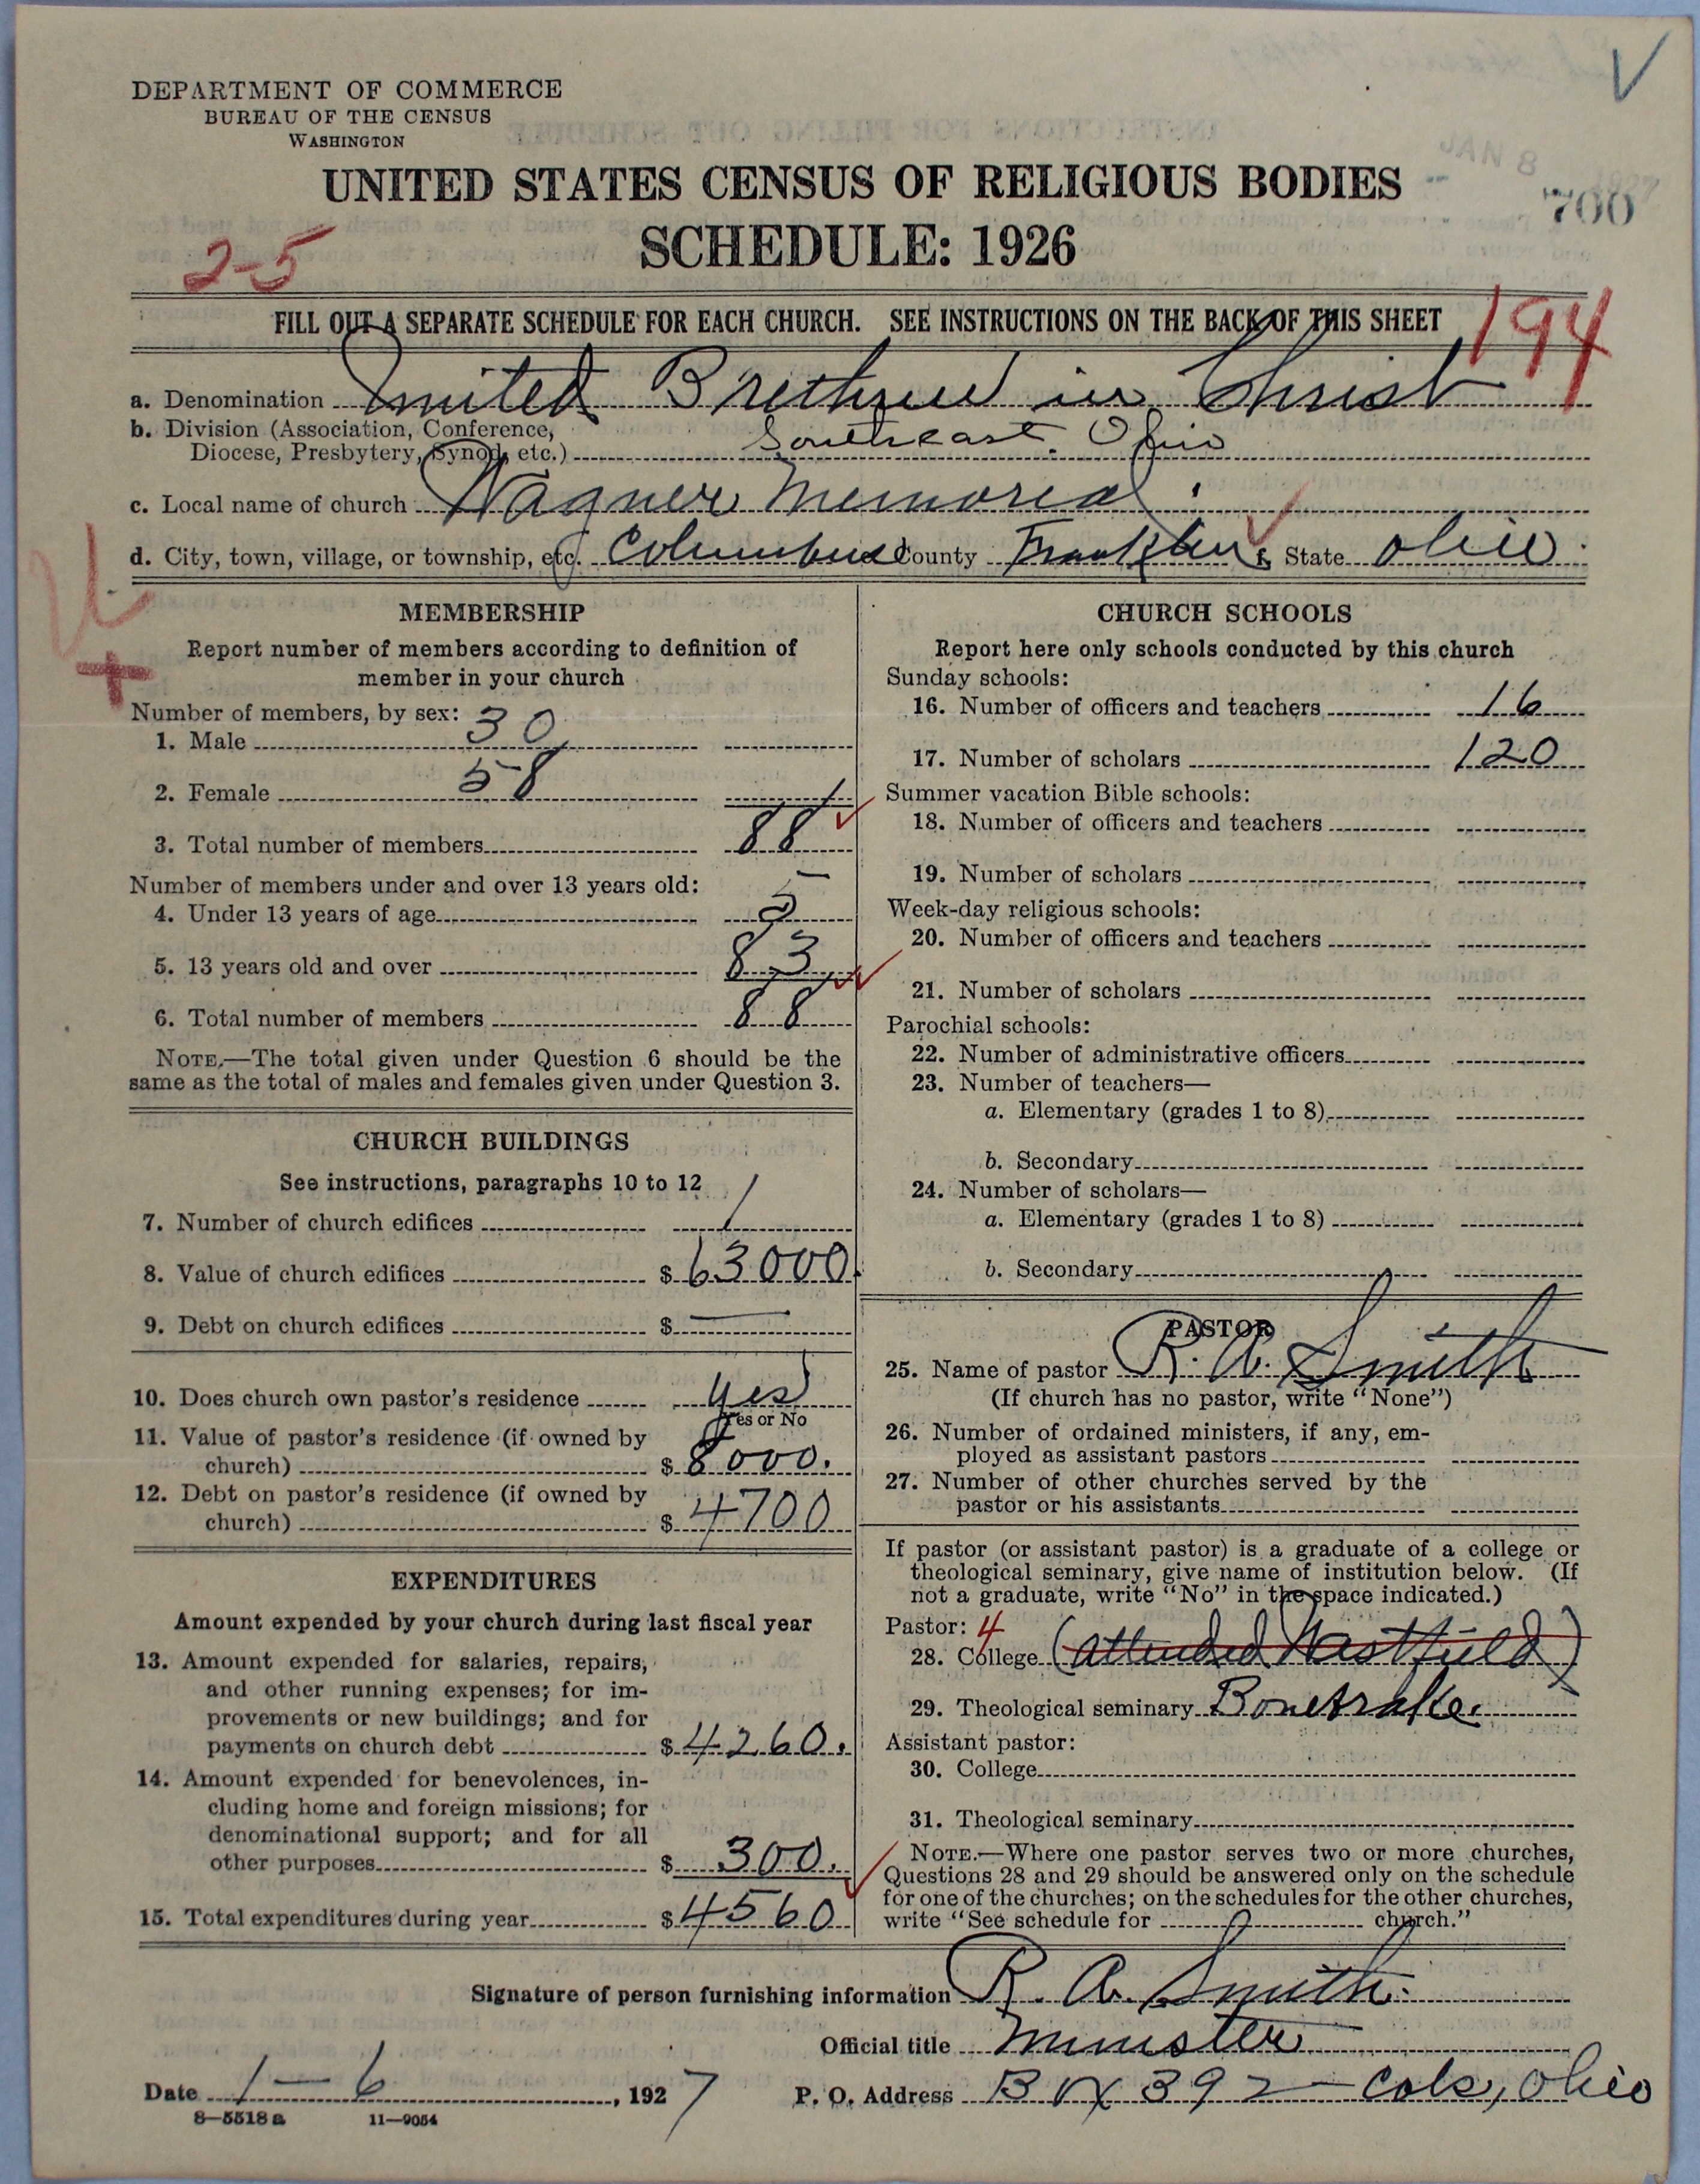 DEPARTMENT OF COMMERCE
BUREAU OF THE CENSUS
WASHINGTON
UNITED STATES CENSUS OF RELIGIOUS BODIES
700
SCHEDULE: 1926
2-5
FILL OUT A SEPARATE SCHEDULE FOR EACH CHURCH. SEE INSTRUCTIONS ON THE BACK OF THIS SHEET
194
a. Denomination United Brethren in Christ
b. Division (Association, Conference,
Diocese, Presbytery, Synod, etc.) Southeast Ohio
c. Local name of church Wagner Memorial
d. City, town, village, or township, etc. Columbus County Franklin State Ohio
MEMBERSHIP
Report number of members according to definition of
member in your church
Number of members, by sex:
1. Male 30
2. Female 58
3. Total number of members 88
Number of members under and over 13 years old:
4. Under 13 years of age 5
5. 13 years old and over 83
6. Total number of members 88
NOTE.—The total given under Question 6 should be the
same as the total of males and females given under Question 3.
CHURCH BUILDINGS
See instructions, paragraphs 10 to 12
7. Number of church edifices 1
8. Value of church edifices $ 63000
9. Debt on church edifices $ —
10. Does church own pastor's residence yes
Yes or No
11. Value of pastor's residence (if owned by
church) $ 8000.
12. Debt on pastor's residence (if owned by
church) $ 4700
EXPENDITURES
Amount expended by your church during last fiscal year
13. Amount expended for salaries, repairs,
and other running expenses; for im-
provements or new buildings; and for
payments on church debt $ 4260.
14. Amount expended for benevolences, in-
cluding home and foreign missions; for
denominational support; and for all
other purposes $ 300.
15. Total expenditures during year $ 4560
CHURCH SCHOOLS
Report here only schools conducted by this church
Sunday schools:
16. Number of officers and teachers 16
17. Number of scholars 120
Summer vacation Bible schools:
18. Number of officers and teachers
19. Number of scholars
Week-day religious schools:
20. Number of officers and teachers
21. Number of scholars
Parochial schools:
22. Number of administrative officers
23. Number of teachers—
a. Elementary (grades 1 to 8)
b. Secondary
24. Number of scholars—
a. Elementary (grades 1 to 8)
b. Secondary
PASTOR
25. Name of pastor R. A. Smith
(If church has no pastor, write "None")
26. Number of ordained ministers, if any, em-
ployed as assistant pastors
27. Number of other churches served by the
pastor or his assistants
If pastor (or assistant pastor) is a graduate of a college or
theological seminary, give name of institution below. (If
not a graduate, write "No" in the space indicated.)
Pastor: 4
28. College (attended Westfield)
29. Theological seminary Bonebrake.
Assistant pastor:
30. College
31. Theological seminary
NOTE.—Where one pastor serves two or more churches,
Questions 28 and 29 should be answered only on the schedule
for one of the churches; on the schedules for the other churches,
write "See schedule for church."
Signature of person furnishing information R. A. Smith.
Official title Minister
Date 1-6, 1927 P. O. Address Box 392 - Cols, Ohio
8—5518 a 11—9054